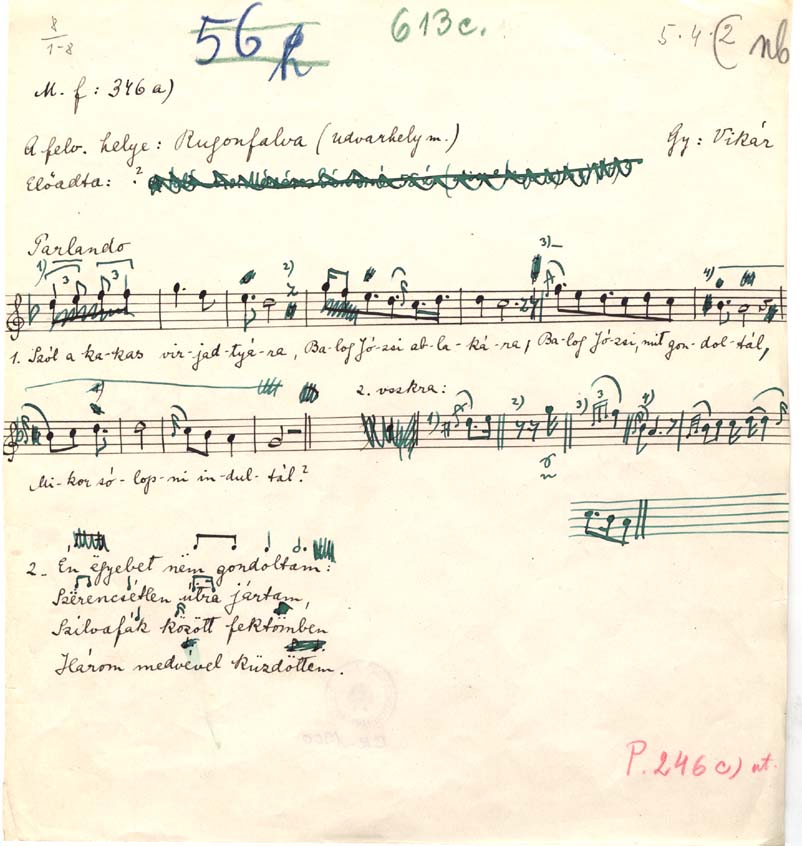 8
1-8
56
613c.
5.4.(2
nb
M. f: 346 a)
A felv. helye: Rugonfalva (Udvarhely m.)
Gy: Vikár
Előadta: ?
Parlando
1) 3 3 2) 3) 4)
1. Szól a ka-kas vir-jad-tyá-ra, Ba-log Jó-zsi ab-la-ká-ra, Ba-log Jó-zsi, mit gon-dol-tál,
2. vsszkra:
1) 2) 3) 3 4)
Mi-kor só-lop-ni in-dul-tál?
2. Én ëgyebet nëm gondoltam:
Szërencsétlen útra jártam,
Szilvafák között fektömben
Három medvével küzdöttem.
P. 246 c) at.